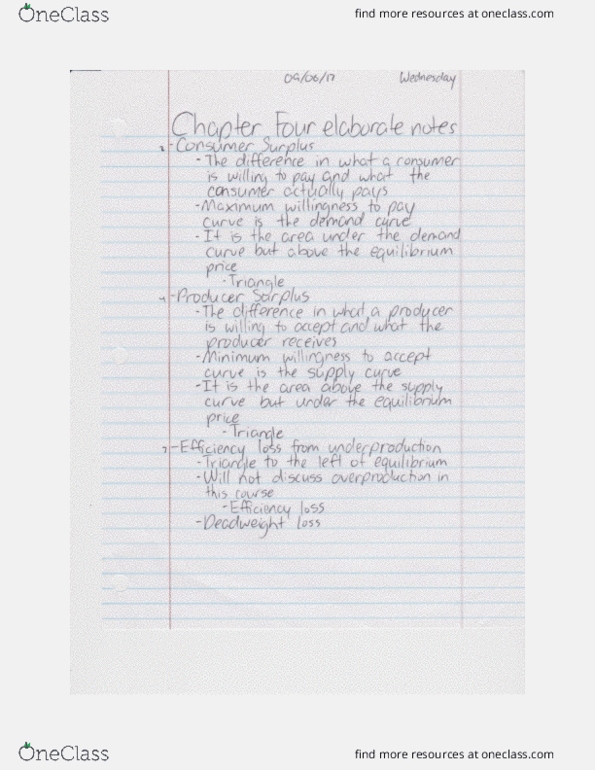 OneClass
find more resources at oneclass.com
09/06/17 Wednesday
Chapter Four elaborate notes
-Consumer Surplus
-The difference in what a consumer
is willing to pay and what the
consumer actually pays
-Maximum willingness to pay
curve is the demand curve
-It is the area under the demand
curve but above the equilibrium
price
-Triangle
-Producer Surplus
-The difference in what a producer
is willing to accept and what the
producer receives
-Minimum willingness to accept
curve is the supply curve
-It is the area above the supply
curve but under the equilibrium
price
-Triangle
-Efficiency loss from underproduction
-Triangle to the left of equilibrium
-Will not discuss overproduction in
this course
-Efficiency loss
-Deadweight loss
OneClass
find more resources at oneclass.com